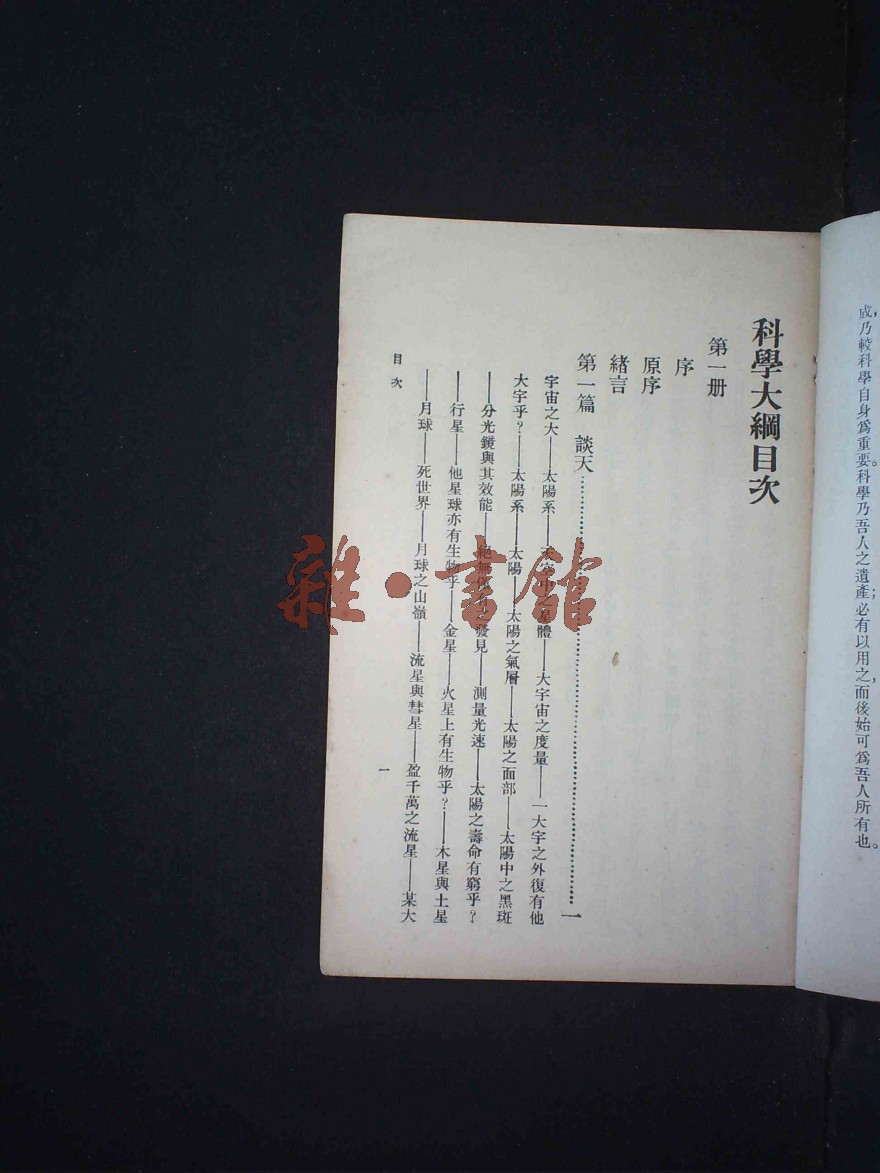 成,乃較科學自身爲重要。科學乃吾人之遺產;必有以用之,而後始可爲吾人所有也。
科學大綱目次
第一册
序
原序
緒言
第一篇 談天……一
宇宙之大——太陽系——天空中之星體——大宇宙之度量——一大宇之外復有他
大宇乎?——太陽系——太陽——太陽之氣層——太陽之面部——太陽中之黑斑
——分光鏡與其效能——絕無僅有之發見——測量光速——太陽之壽命有窮乎?
——行星——他星球亦有生物乎?——金星——火星上有生物乎?——木星與土星
——月球——死世界——月球之山嶺——流星與彗星——盈千萬之流星——某大
目次
一
雜·書館